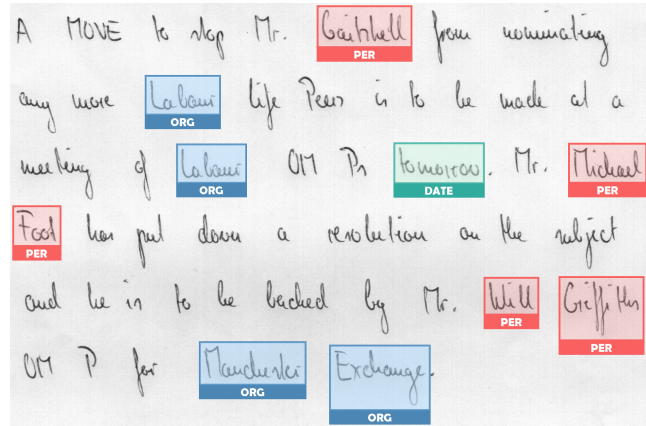 A MOVE to stop Mr. Gaitskell from nominating
PER
any more Labour life Peers is to be made at a
ORG
meeting of Labour OM Ps tomorrow. Mr. Michael
ORG DATE PER
Foot has put down a resolution on the subject
PER
and he is to be backed by Mr. Will Griffiths
PER PER
OM P for Manchester Exchange.
ORG ORG